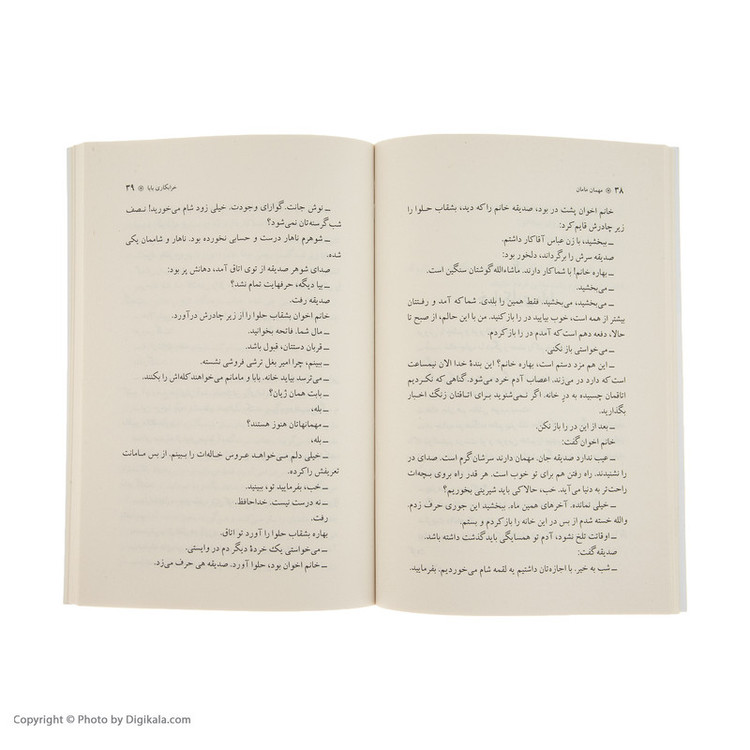 ۳۸ ※ مهمان مامان
خانم اخوان پشت در بود، صدیقه خانم را که دید، بشقاب حلوا را
زیر چادرش قایم کرد:
ـ ببخشید، با زن عباس آقا کار داشتم.
صدیقه سرش را برگرداند، دلخور بود:
ـ بهاره خانم! با شما کار دارند. ماشاءالله گوشتان سنگین است.
ـ می‌بخشید.
ـ می‌بخشید، می‌بخشید. فقط همین را بلدی. شما که آمد و رفتتان
بیشتر از همه است، خوب بیایید در را باز کنید. من با این حالم، از صبح تا
حالا، دفعه دهم است که آمدم در را باز کردم.
ـ می‌خواستی باز نکنی.
ـ این هم مزد دستم است، بهاره خانم؟ این بندهٔ خدا الان نیمساعت
است که دارد در می‌زند. اعصاب آدم خرد می‌شود. گناهی که نکردیم
اتاقمان چسبیده به درِ خانه. اگر نمی‌شنوید برای اتاقتان زنگ اخبار
بگذارید.
ـ بعد از این در را باز نکن.
خانم اخوان گفت:
ـ عیب ندارد صدیقه جان. مهمان دارند سرشان گرم است. صدای در
را نشنیدند. راه رفتن هم برای تو خوب است. هر قدر راه بروی بچه‌ات
راحت‌تر به دنیا می‌آید. خب، حالا کی باید شیرینی بخوریم؟
ـ خیلی نمانده. آخرهای همین ماه. ببخشید این جوری حرف زدم.
والله خسته شدم از بس در این خانه را باز کردم و بستم.
ـ اوقاتت تلخ نشود، آدم تو همسایگی باید گذشت داشته باشد.
صدیقه گفت:
ـ شب به خیر. با اجازه‌تان داشتیم یه لقمه شام می‌خوردیم. بفرمایید.
خرابکاری بابا ※ ۳۹
ـ نوش جانت. گوارای وجودت. خیلی زود شام می‌خورید! نصف
شب گرسنه‌تان نمی‌شود؟
ـ شوهرم ناهار درست و حسابی نخورده بود. ناهار و شاممان یکی
شده.
صدای شوهر صدیقه از توی اتاق آمد، دهانش پر بود:
ـ بیا دیگه، حرفهایت تمام نشد؟
صدیقه رفت.
خانم اخوان بشقاب حلوا را از زیر چادرش درآورد.
ـ مال شما. فاتحه بخوانید.
ـ قربان دستتان، قبول باشد.
ـ ببینم، چرا امیر بغل ترشی فروشی نشسته.
ـ می‌ترسد بیاید خانه. بابا و مامانم می‌خواهند کله‌اش را بکنند.
ـ بابت همان ژیان؟
ـ بله،
ـ مهمانهاتان هنوز هستند؟
ـ بله،
ـ خیلی دلم می‌خواهد عروس خاله‌ات را ببینم. از بس مامانت
تعریفش را کرده.
ـ خب، بفرمایید تو، ببینید.
ـ نه درست نیست. خداحافظ.
رفت.
بهاره بشقاب حلوا را آورد تو اتاق.
ـ می‌خواستی یک خردهٔ دیگر دم در وایستی.
ـ خانم اخوان بود، حلوا آورد. صدیقه هی حرف می‌زد.
Copyright © Photo by Digikala.com